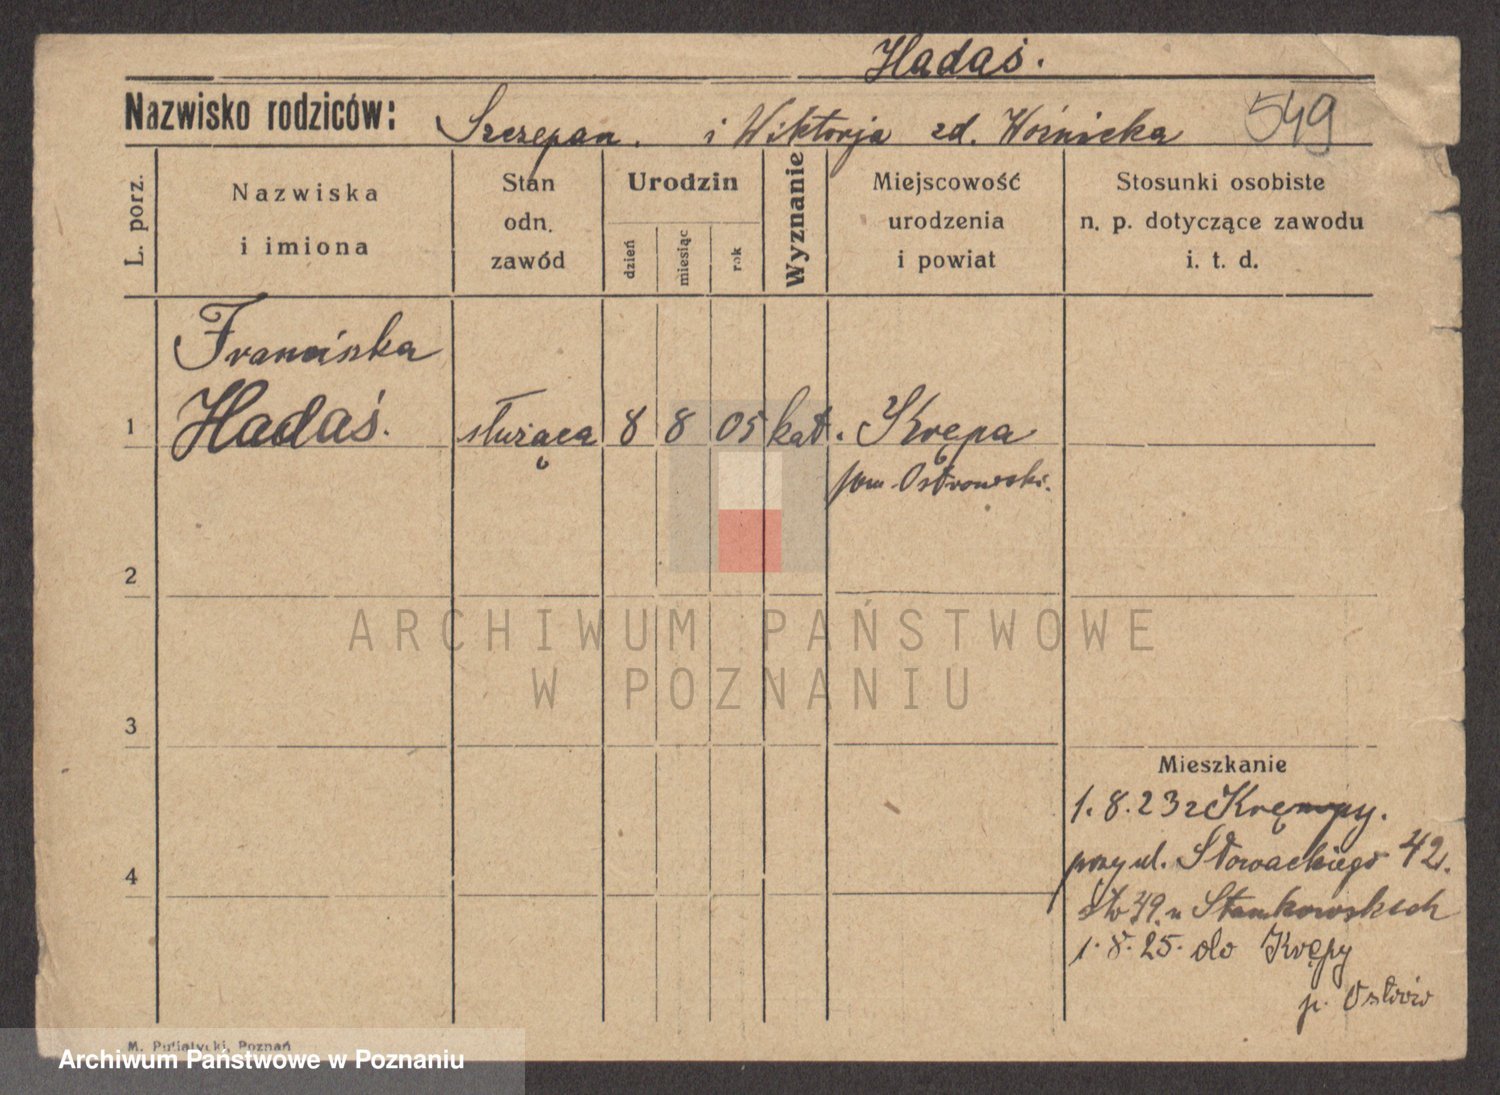 Hadaś.
Nazwisko rodziców: Szczepan. i Wiktorja zd. Woźnicka 549
L. porz.
Nazwiska
i imiona
Stan
odn.
zawód
Urodzin
dzień
miesiąc
rok
Wyznanie
Miejscowość
urodzenia
i powiat
Stosunki osobiste
n. p. dotyczące zawodu
i. t. d.
Franciszka
1 Hadaś. służąca 8 8 05 kat. Krępa
pow. Ostrowski.
2
ARCHIWUM PAŃSTWOWE
W POZNANIU
3
Mieszkanie
1. 8. 23 z Krępy.
przy ul. Słowackiego 42.
4
39. u Stankowskich
1. 8. 25. do Krępy
p. Ostrów
M. Putiatycki, Poznań
Archiwum Państwowe w Poznaniu